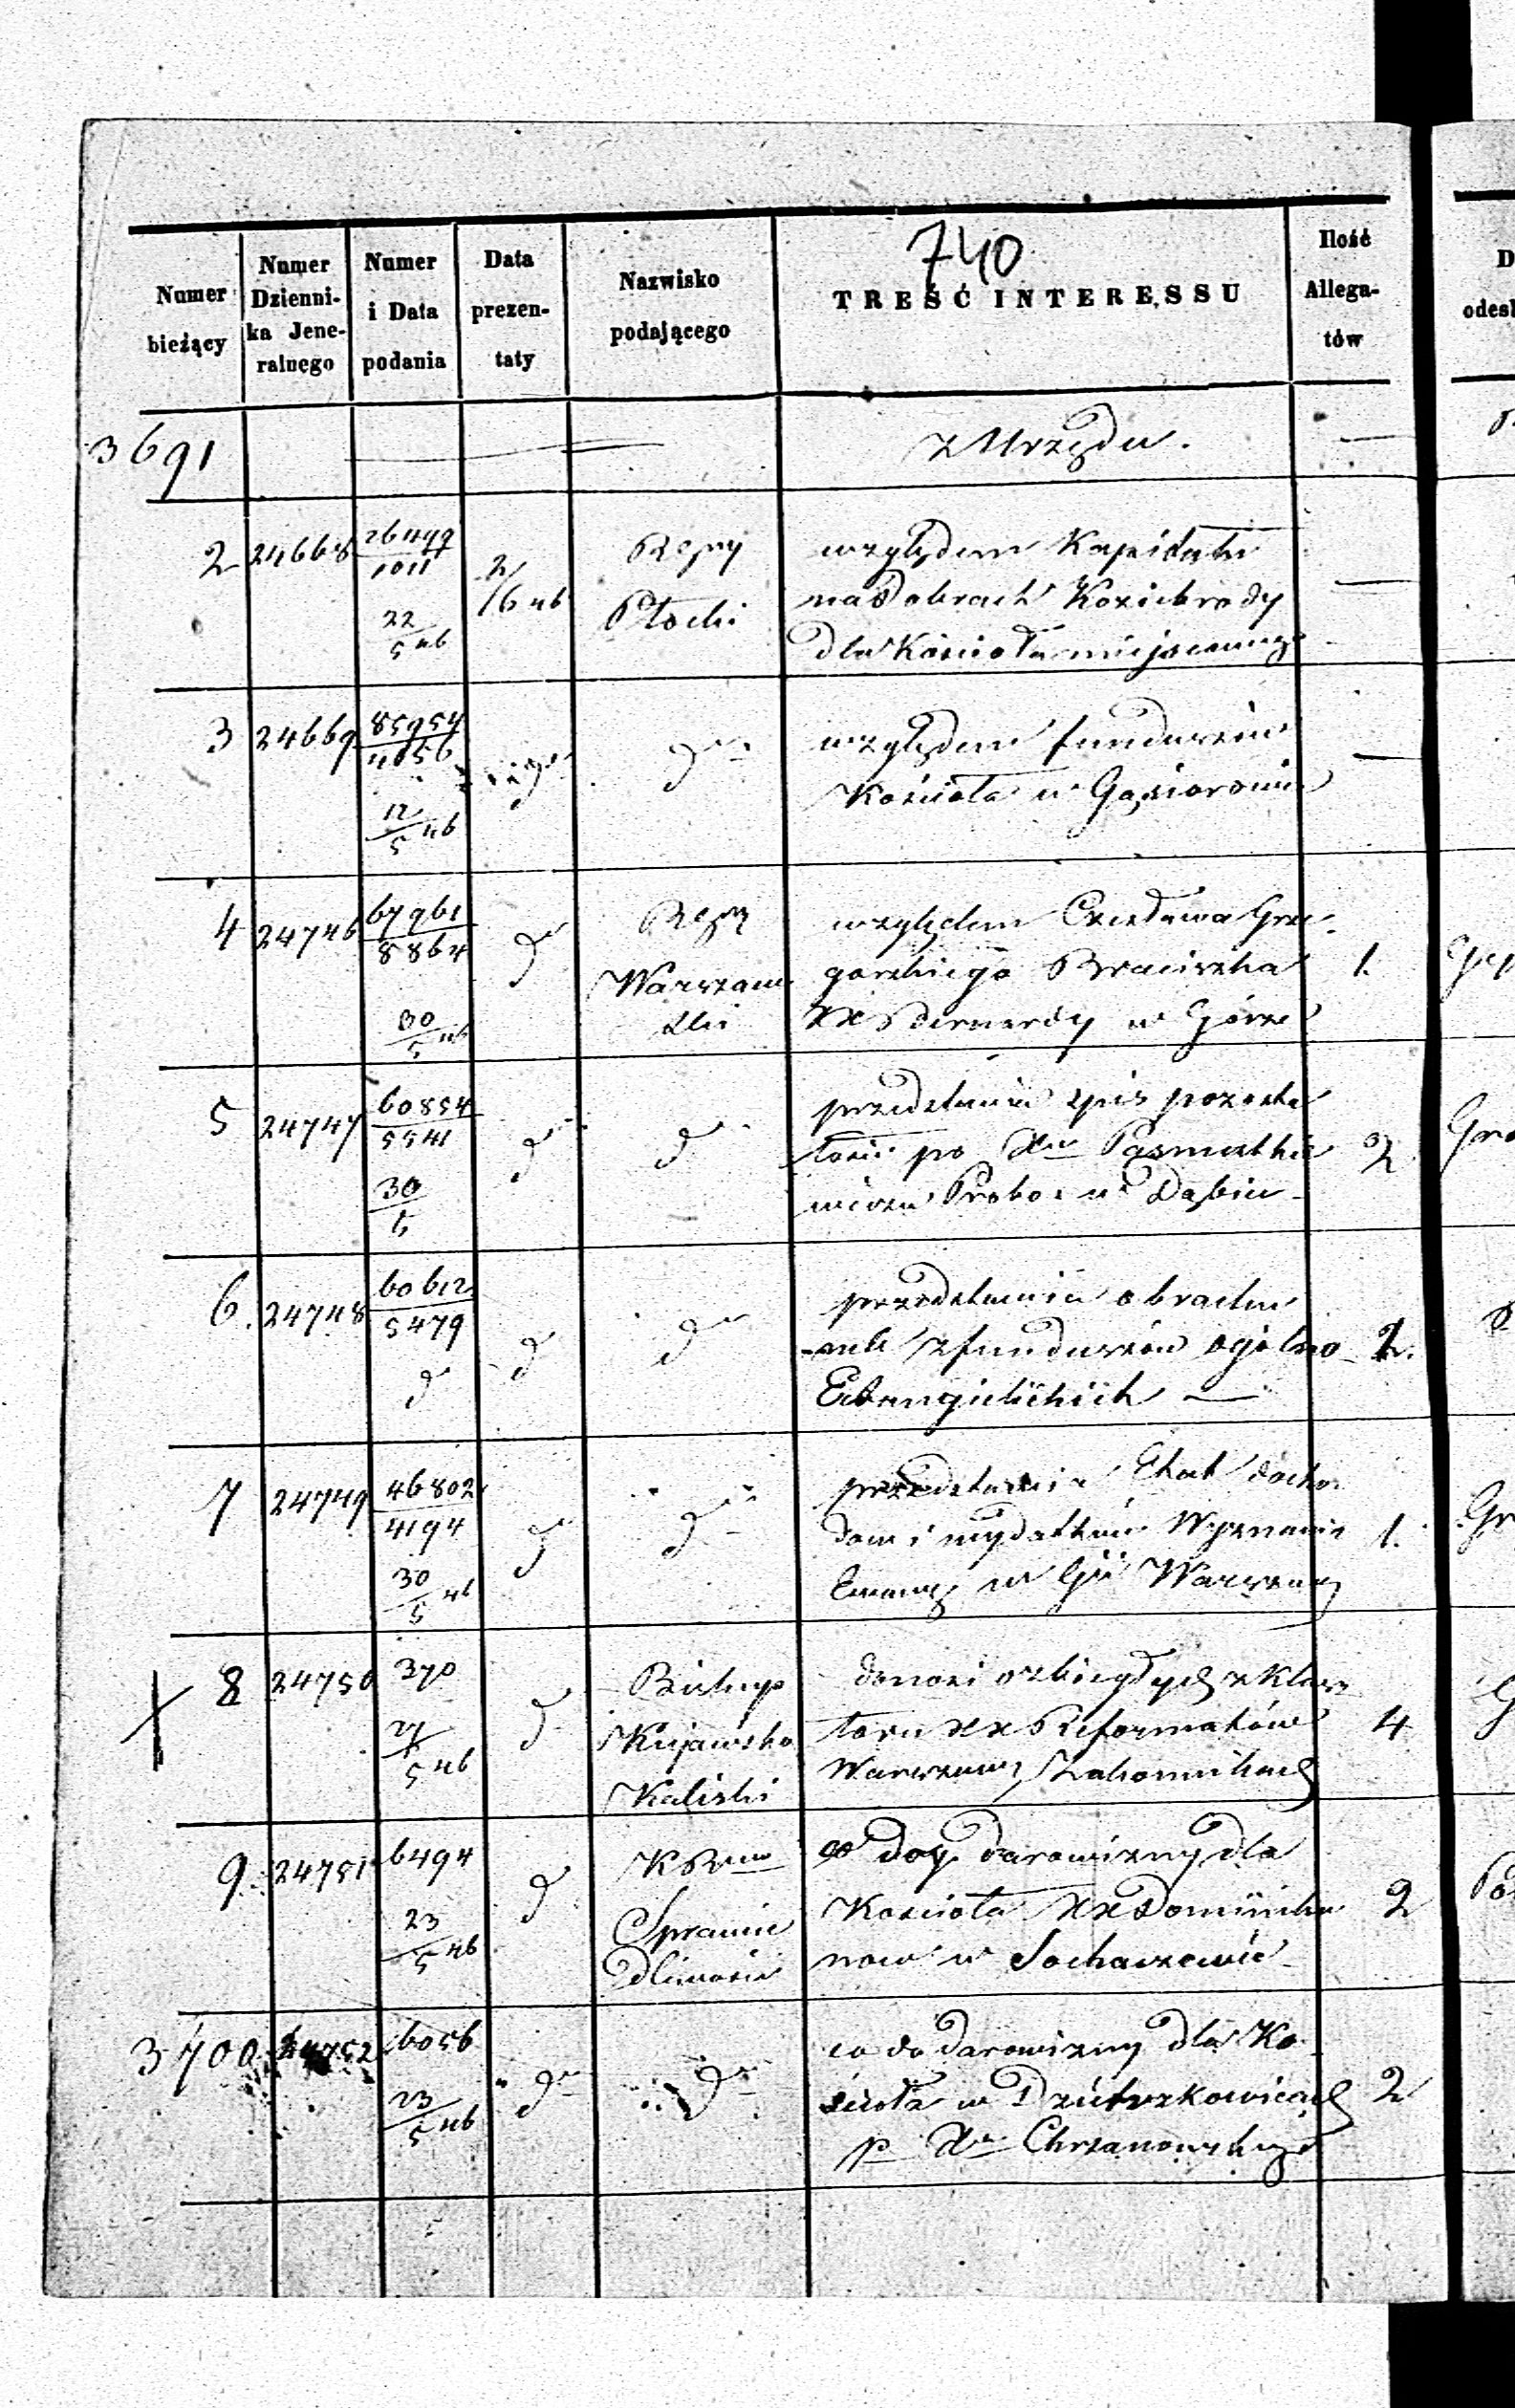 740
Numer bieżący
Numer Dzienni-
ka Jene-
ralnego
Numer i Data podania
Data prezen-
taty
Nazwisko podającego
TREŚĆ INTERESSU
Ilość Allega-
tów
3691 — z Urzędu. —
2 24668 26499/1011 22/5 46 2/6 46
Płocki
względem Kapitału
na Dobrach Koziebrody
dla Kościoła miejscowego —
3 24669 85954/4056 12/5 46 do do
względem funduszów
Kościoła w Gąsiorowie —
4 24746 67961/8864 30/5 46 do
Warszaw
ski
względem Czesława Grze
gorskiego Braciszka 1.
XX Bernardy w Górze
5 24747 60854/5541 30/5 do do
przedstawia spis pozosta
łości po Xu 2
Probo: w Dąbiu
6. 24748 60612/5479 do do do
przedstawia obrachu
nek z funduszów ogólno 2.
Ewangielickich —
7 24749 46802/4194 30/5 46 do do
przedstawia Etat docho
dow i wydatków Wyznania 1.
Ewang w Gii Warszaw
8 24750 370 21/5 46 do
Biskup
Kujawsko
Kaliski
donosi o zbiegłych z Klasz
toru XX Reformatów 4
Warszaw Zakonnikach
9. 24751 6494 23/5 46 do
K R
Sprawie
dliwości
co do darowizny dla
Kościoła XX Dominika 2
now w Sochaczewie
3700 24752 6056 23/5 46 do do
co do darowizny dla Ko
ścioła w 2
p Xa Chrzanowskiego